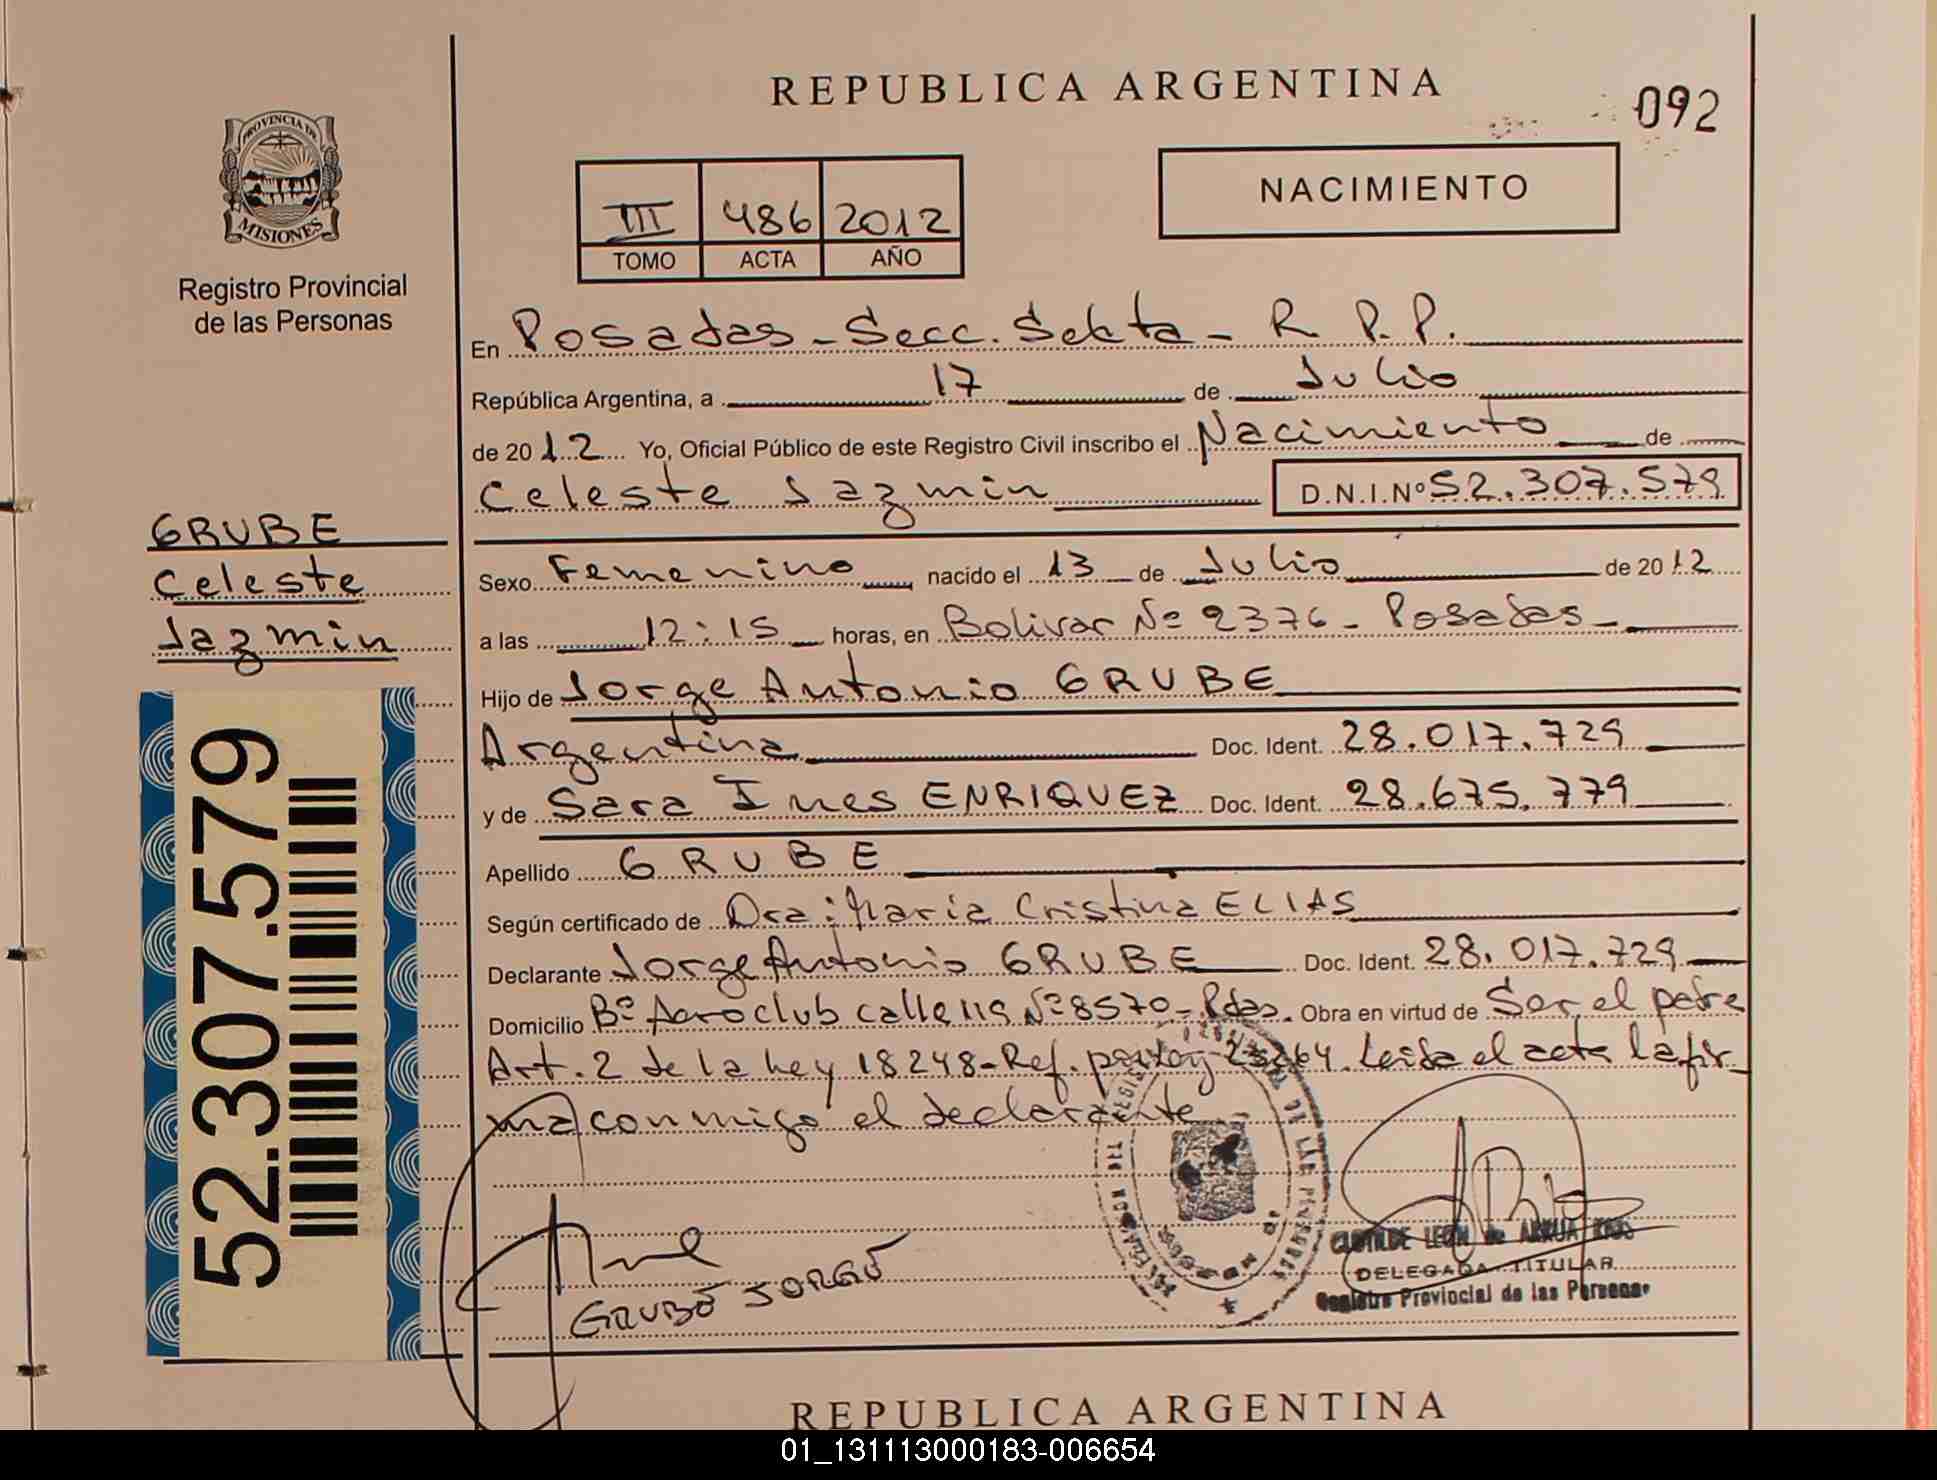 REPUBLICA ARGENTINA
092
PROVINCIA DE
MISIONES
Registro Provincial
de las Personas
III 486 2012
TOMO ACTA AÑO
NACIMIENTO
En Posadas - Secc. Sexta - R. P. P.
República Argentina, a 17 de Julio
de 2012 Yo, Oficial Público de este Registro Civil inscribo el Nacimiento de
Celeste Jazmin D.N.I.Nº 52.307.579
GRUBE
Celeste
Jazmin
52.307.579
Sexo Femenino nacido el 13 de Julio de 2012
a las 12:15 horas, en Bolivar Nº 2376 - Posadas -
Hijo de Jorge Antonio GRUBE
Argentina Doc. Ident. 28.017.729
y de Sara Ines ENRIQUEZ Doc. Ident. 28.675.779
Apellido GRUBE
Según certificado de Dra: Maria Cristina ELIAS
Declarante Jorge Antonio GRUBE Doc. Ident. 28.017.729
Domicilio Bº Aeroclub calle 119 Nº 8570 - Pdas. Obra en virtud de Ser el padre
Art. 2 de la Ley 18248 - Ref. por Ley 26264. Leida el acta la fir-
ma conmigo el declarante
GRUBE JORGE
CLOTILDE LEON de ARRUA
DELEGADA TITULAR
Registro Provincial de las Personas
REPUBLICA ARGENTINA
01_131113000183-006654